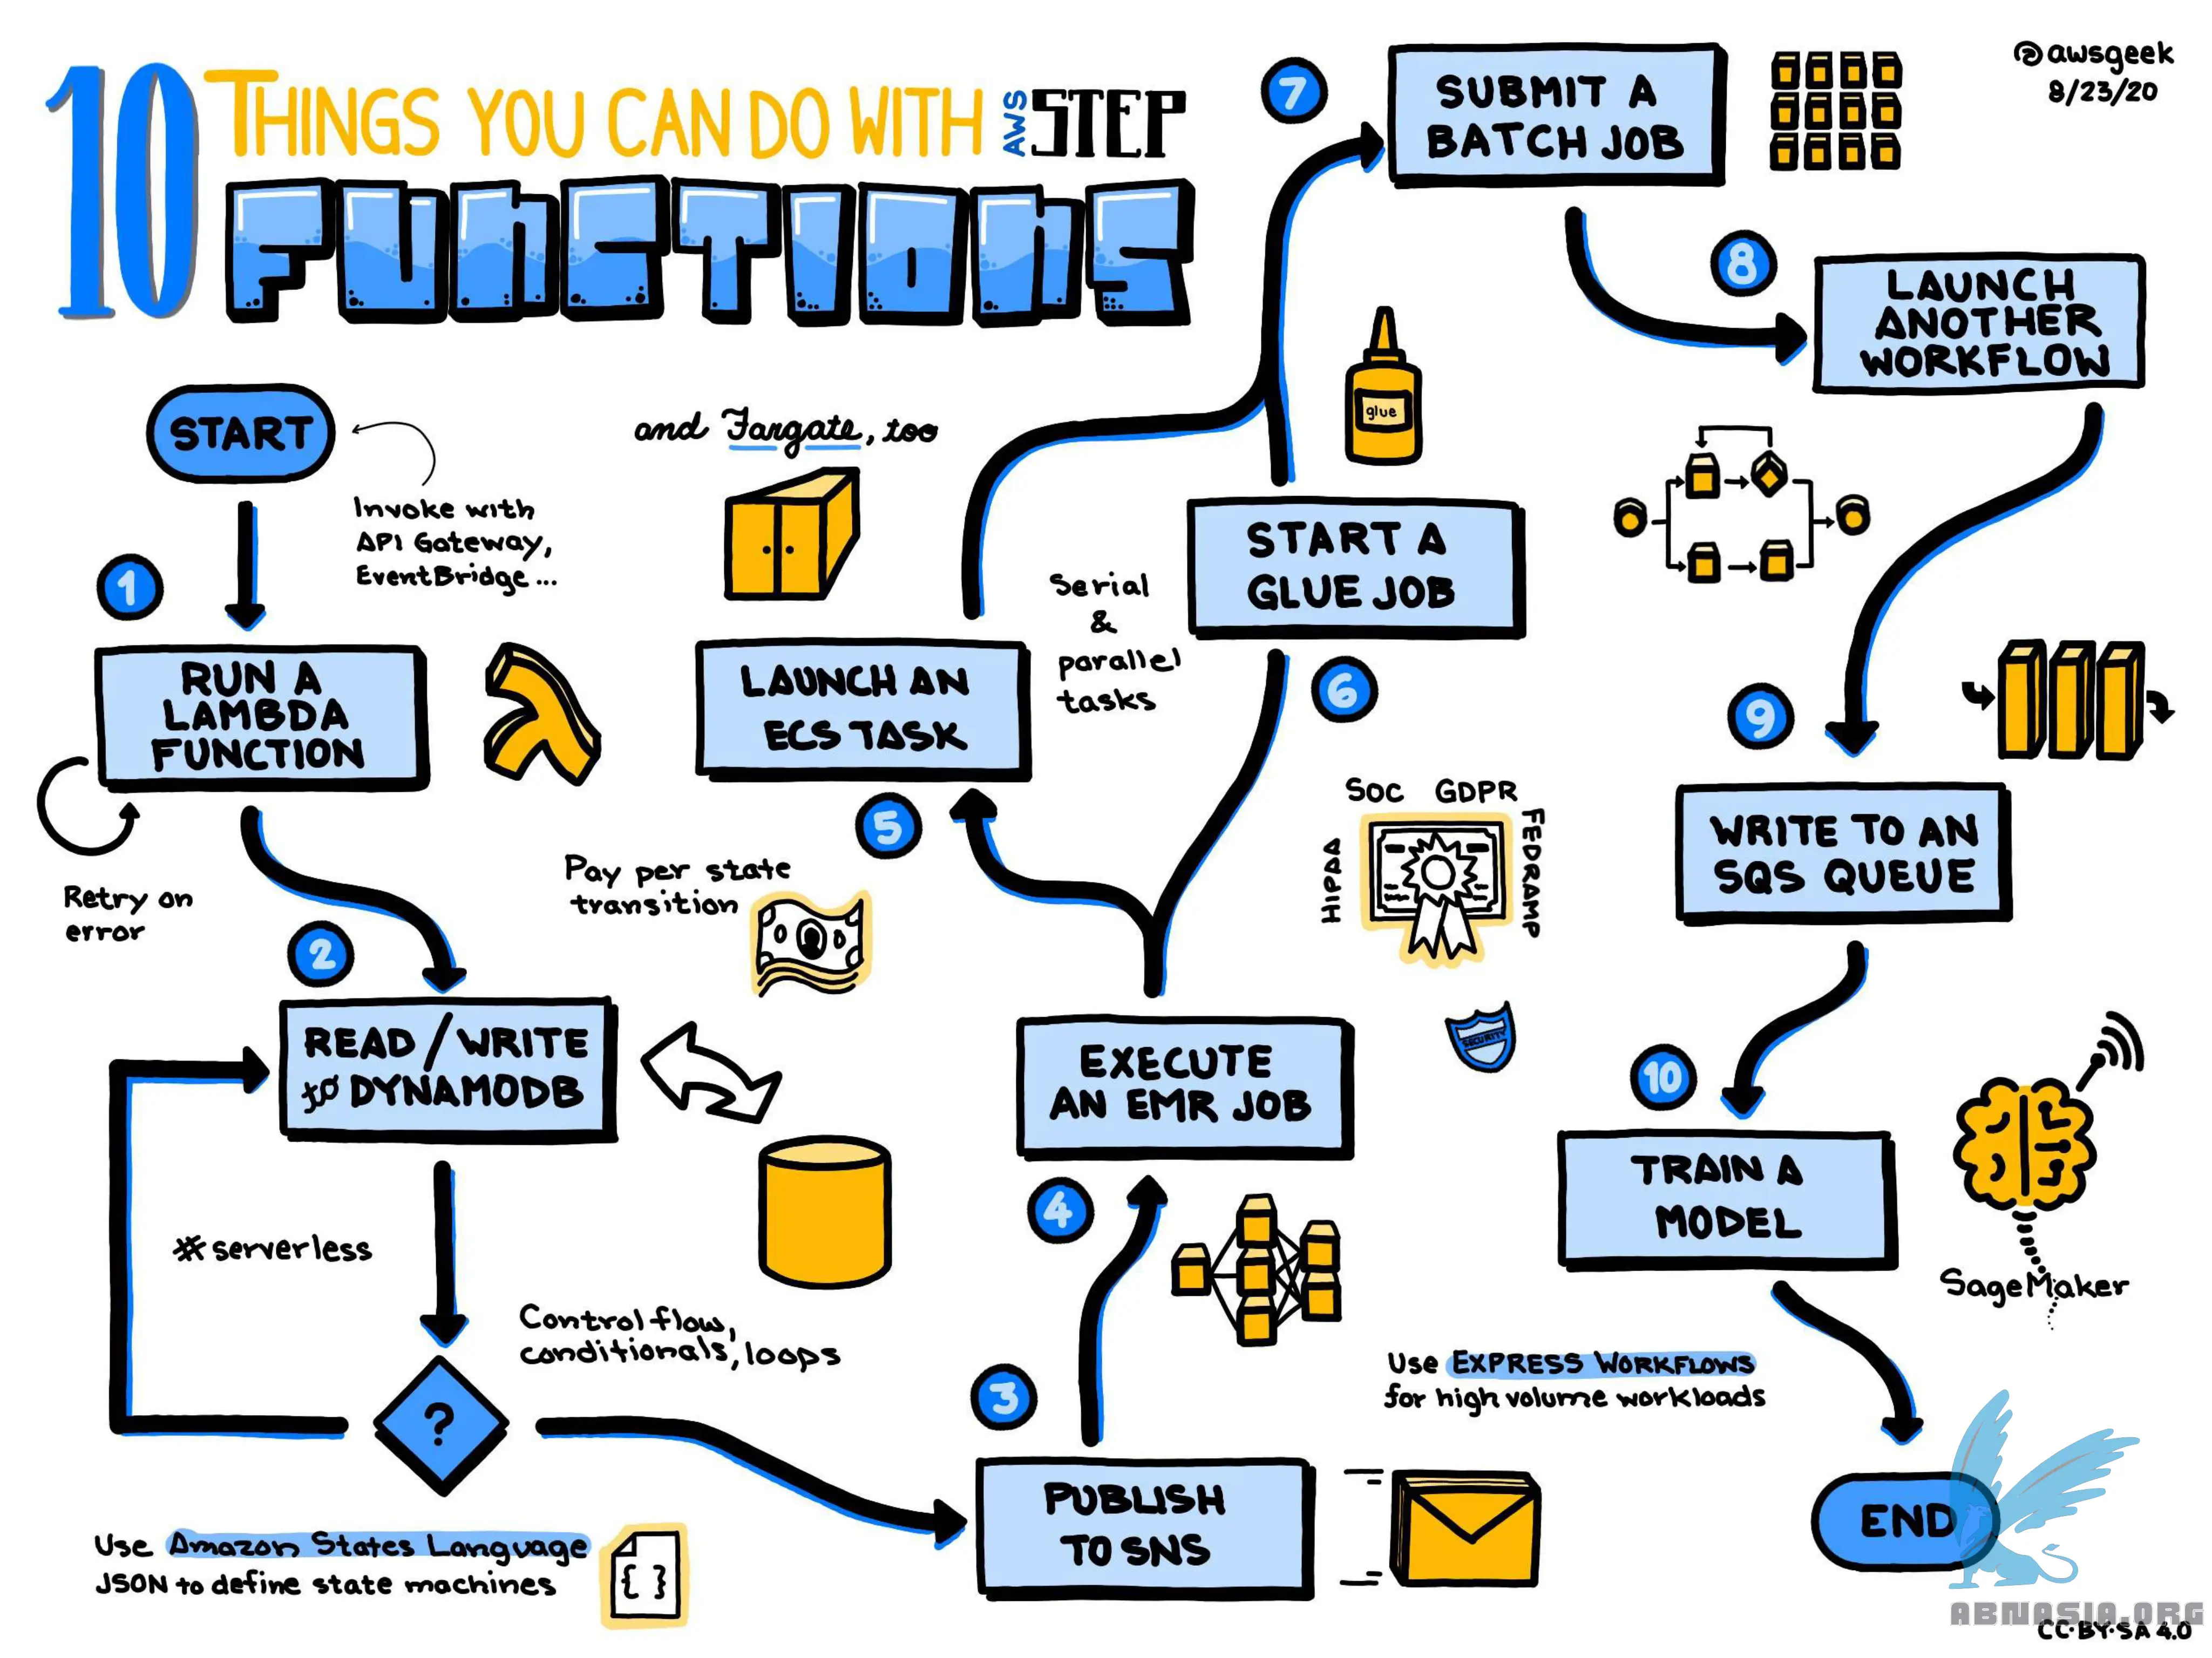 10 THINGS YOU CAN DO WITH AWS STEP
FUNCTIONS
@awsgeek
8/23/20
START
Invoke with
API Gateway,
EventBridge...
1
RUN A
LAMBDA
FUNCTION
Retry on
error
2
READ/WRITE
to DYNAMODB
Pay per state
transition
#serverless
Control flow,
conditionals, loops
?
Use Amazon States Language
JSON to define state machines
{ }
3
PUBLISH
TO SNS
4
EXECUTE
AN EMR JOB
5
LAUNCH AN
ECS TASK
and Fargate, too
Serial
&
parallel
tasks
6
START A
GLUE JOB
glue
7
SUBMIT A
BATCH JOB
8
LAUNCH
ANOTHER
WORKFLOW
9
WRITE TO AN
SQS QUEUE
SOC GDPR
HIPAA
FEDRAMP
SECURITY
10
TRAIN A
MODEL
SageMaker
Use EXPRESS WORKFLOWS
for high volume workloads
END
ABNASIA.ORG
CC-BY-SA 4.0